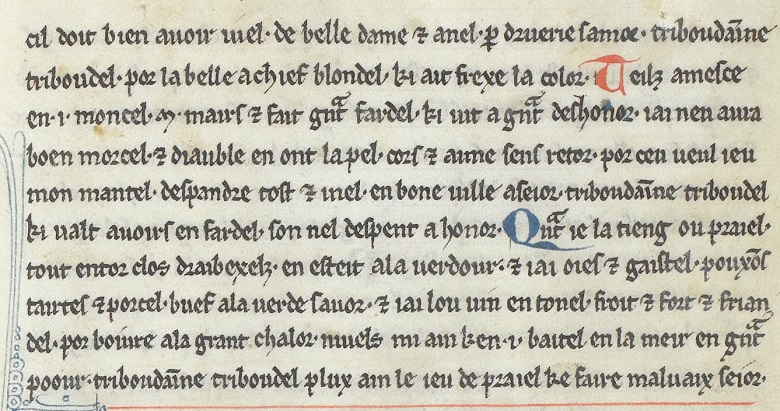 cil doit bien auoir iuel · de belle dame ⁊ anel · ꝑ druerie samor · triboudaĩne
triboudel · por la belle a chief blondel · ki ait frexe la color · Teilz amesce
en · i · moncel · ꝳ · mairs ⁊ fait gͣnt fardel · ki uit a gͣnt deshonor · iai nen aura
boen morcel · ⁊ diauble en ont la pel · cors ⁊ aume sens retor · por ceu ueul ieu
mon mantel · despandre tost ⁊ inel · en bone uille a seior · triboudaĩne triboudel
ki ualt auoirs en fardel · son nel despent a honor · Qͣnt ie la tieng ou praiel ·
tout entor clos draibexelz · en esteit a la uerdour · ⁊ iai oies ⁊ gaistel · pouxõs
tairtes ⁊ porcel · buef a la uerde sauor · ⁊ iai lou uin en tonel · froit ⁊ fort ⁊ frian
del · por boiure a la grant chalor · muels mi ain ken · i · baitel en la meir en gͣnt
poour · triboudaĩne triboudel plux ain le ieu de praiel ke faire maluaix seior ·